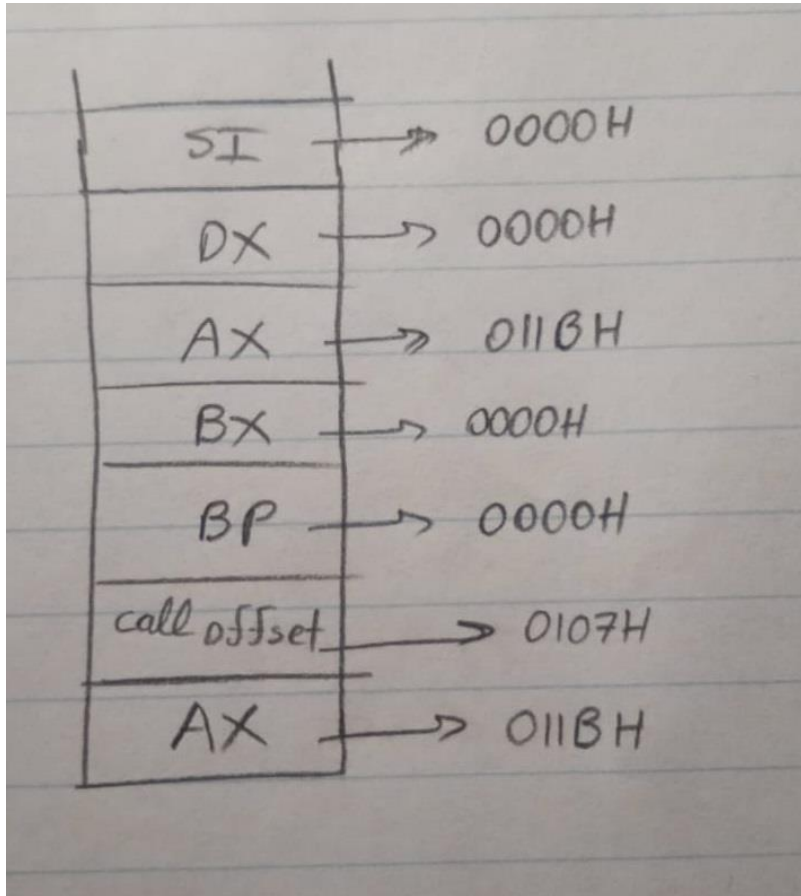 SI → 0000H
DX → 0000H
AX → 011BH
BX → 0000H
BP → 0000H
call offset → 0107H
AX → 011BH